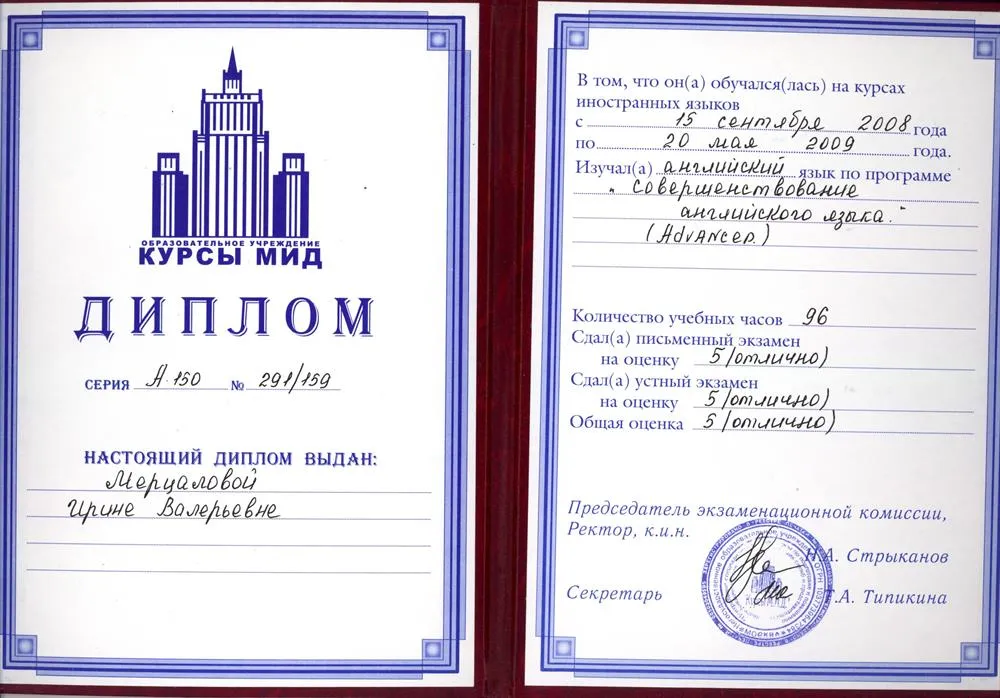 ОБРАЗОВАТЕЛЬНОЕ УЧРЕЖДЕНИЕ
КУРСЫ МИД
ДИПЛОМ
СЕРИЯ А 150 № 291/159
НАСТОЯЩИЙ ДИПЛОМ ВЫДАН:
Мерцаловой
Ирине Валерьевне
В том, что он(а) обучался(лась) на курсах
иностранных языков
с 15 сентября 2008 года
по 20 мая 2009 года.
Изучал(а) английский язык по программе
"Совершенствование
английского языка."
(Advanced.)
Количество учебных часов 96
Сдал(а) письменный экзамен
на оценку 5 (отлично)
Сдал(а) устный экзамен
на оценку 5 (отлично)
Общая оценка 5 (отлично)
Председатель экзаменационной комиссии,
Ректор, к.и.н.
Н.А. Стрыканов
Секретарь Т.А. Типикина
МОСКВА